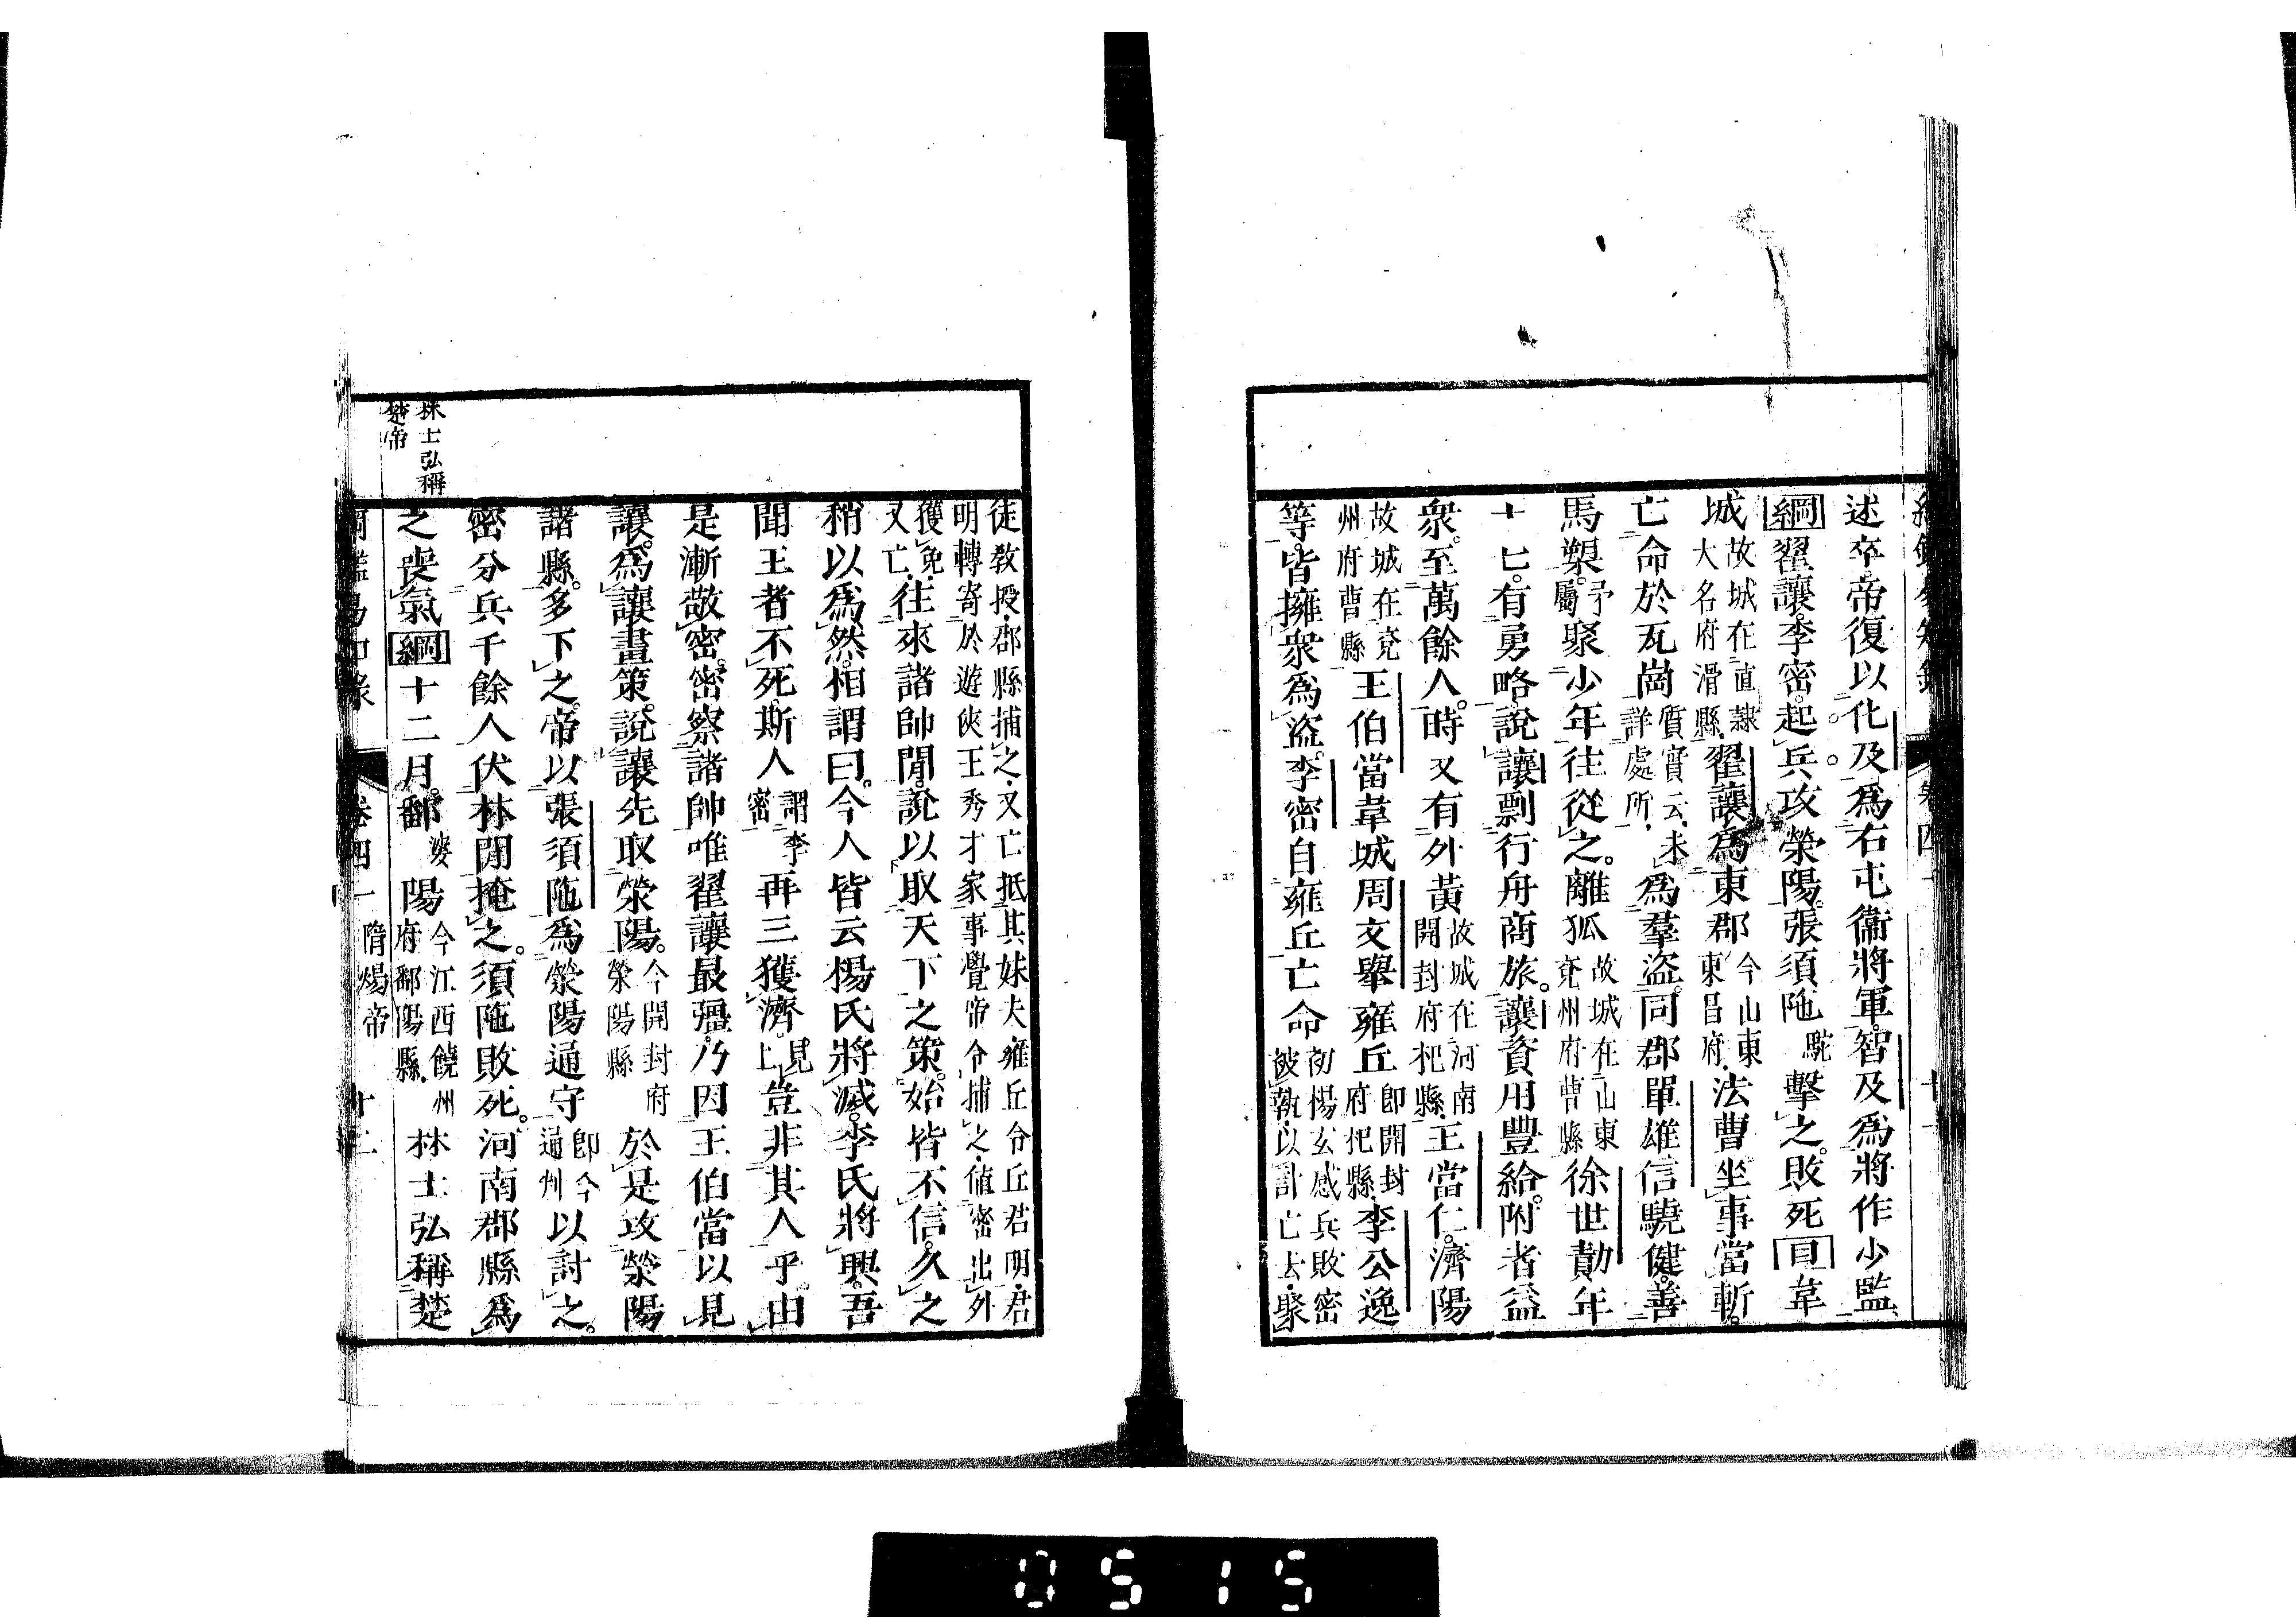 述卒。帝復以化及。爲右屯衞將軍。智及爲將作少監、
綱翟讓。李密。起兵。攻滎陽。張須陁駝擊之。敗死目韋
城故城在直隷大名府滑縣翟讓爲東郡今山東東昌府法曹坐事當斬。
亡命於瓦崗質實云、未詳處所、爲羣盜。同郡單雄信驍健。善
馬槊。矛屬聚少年往從之。離狐故城在山東兗州府曹縣徐世勣年
十七。有勇略。說讓剽行舟商旅。讓資用豐給。附者益
衆。至萬餘人。時又有外黃故城在河南開封府杞縣王當仁。濟陽
故城在兗州府曹縣王伯當韋城周文舉雍丘卽開封府杞縣李公逸
等。皆擁衆爲盜。李密自雍丘亡命初楊玄感兵敗密被執、以計亡去、聚
徒敎授、郡縣捕之、又亡抵其妹夫雍丘令丘君明、君
明轉寄於遊俠王秀才家事覺帝令捕之、値密出外
獲免、又亡、往來諸帥間。說以取天下之策。始皆不信。久之
稍以爲然。相謂曰。今人皆云楊氏將滅。李氏將興。吾
聞王者不死。斯人謂李密再三獲濟。見上豈非其人乎。由
是漸敬密。密察諸帥唯翟讓最彊。乃因王伯當以見
讓。爲讓畫策。說讓先取滎陽。今開封府滎陽縣於是攻滎陽
諸縣。多下之。帝以張須陁爲滎陽通守卽今通州以討之。
密分兵千餘人伏林間掩之。須陁敗死。河南郡縣爲
之喪氣綱十二月。鄱婆陽今江西饒州府鄱陽縣、林士弘稱楚
林士弘稱
楚帝
卷四十一 隋煬帝 十二
0515